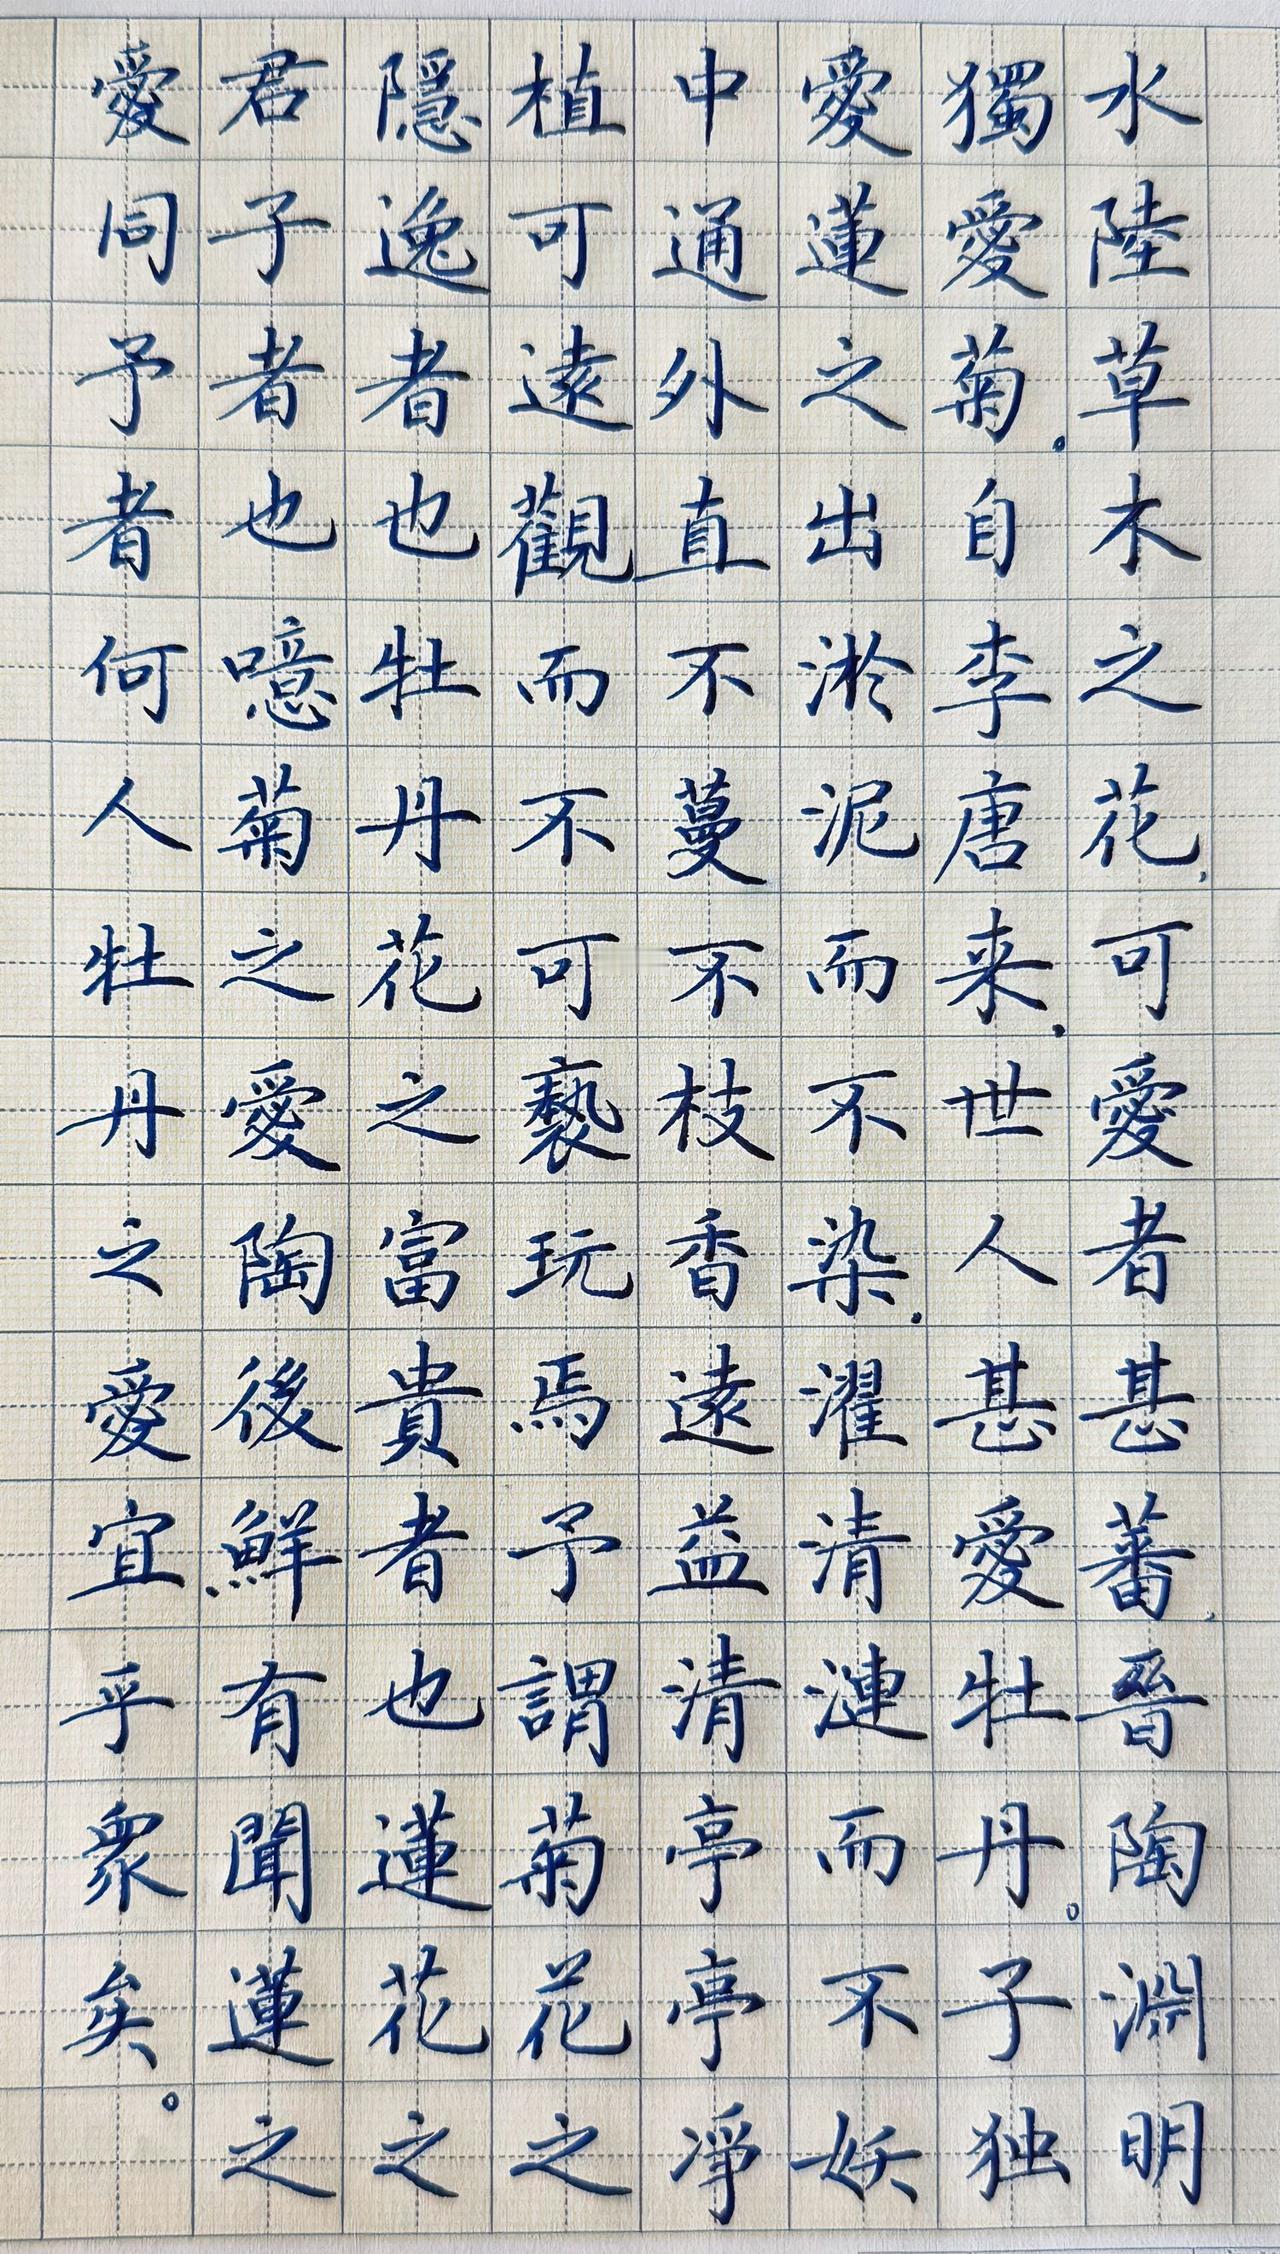 水陸草木之花，可愛者甚蕃，晉陶淵明
獨愛菊。自李唐来，世人甚愛牡丹。子独
愛蓮之出淤泥而不染，濯清漣而不妖
中通外直不蔓不枝香遠益清亭亭凈
植可遠觀而不可褻玩焉予謂菊花之
隱逸者也牡丹花之富貴者也蓮花之
君子者也噫菊之愛陶後鮮有聞蓮之
愛同予者何人牡丹之愛宜乎眾矣。